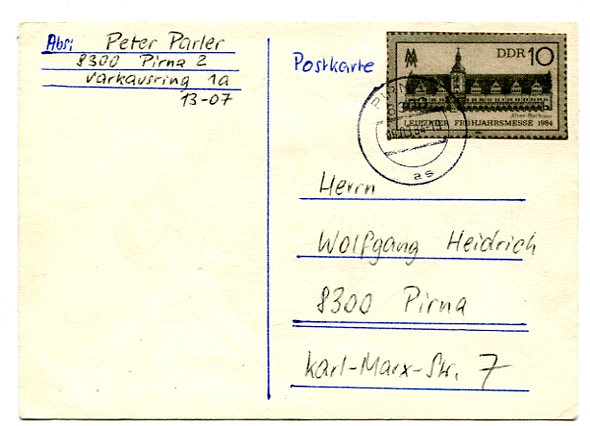 Abs: Peter Parler
8300 Pirna 2
Varkausring 1a
13-07
Postkarte
DDR 10
Alter Rathaus
LEIPZIGER FRÜHJAHRSMESSE 1984
PIRNA
8300
as
Herrn
Wolfgang Heidrich
8300 Pirna
Karl-Marx-Str. 7